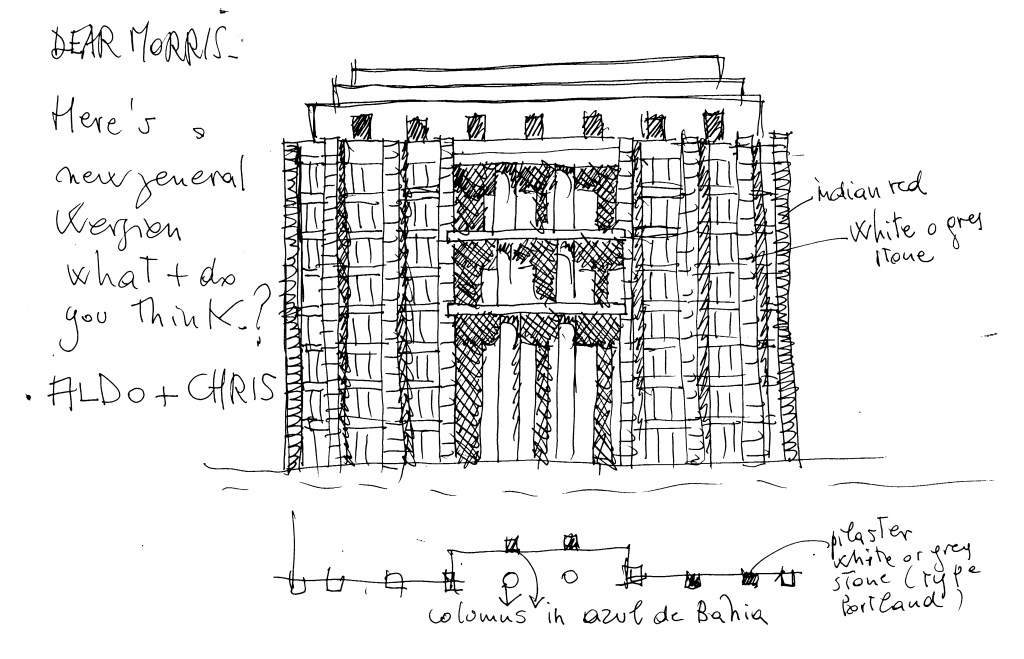 DEAR MORRIS_
Here's a
new general
version
what + do
you think.?
. ALDO + CHRIS
indian red
white o grey
stone
pilaster
white or grey
stone (type
Portland)
columns in azul de Bahia